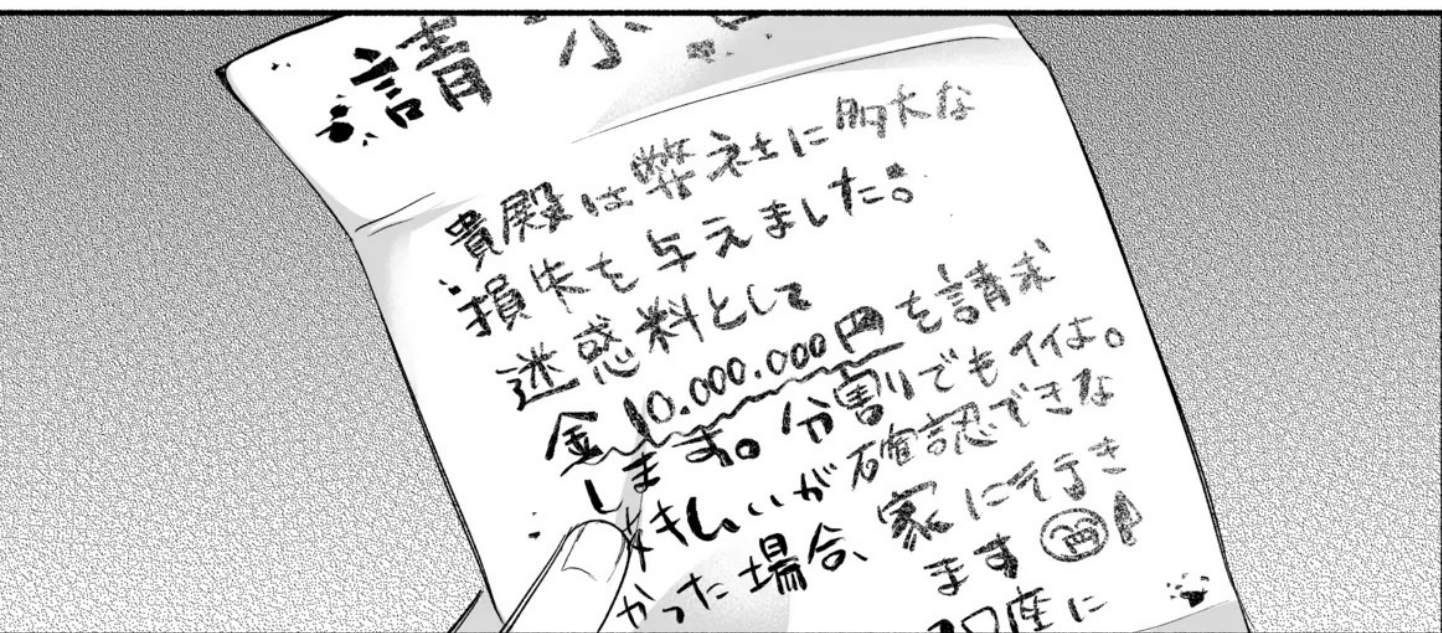 請求
貴殿は弊社に多大な
損失を与えました。
迷惑料として
金10.000.000円を請求
します。分割でもイイよ。
支払いが確認できな
かった場合、家に行き
ます
口座に